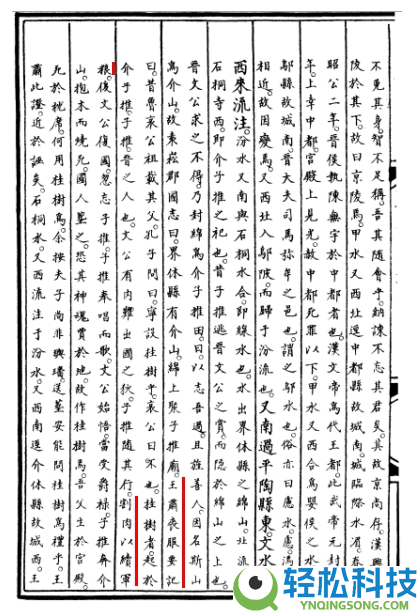 不免其身。智不足稱。吾其隨會乎。納諫不忘其君矣。其故京尚存。漢興
陵於其下。故曰京陵焉。甲水又西北逕中都縣故城南。城臨際水湄。春
昭公二年。晉侯執陳無宇於中都者也。漢文帝爲代王都此。武帝元封
年。上幸中都宮。殿上見光。赦中都死罪以下。甲水又西合嬰侯之水
鄔縣故城南。晉大夫司馬彌牟之邑也。謂之鄔水也。俗亦曰慮水。慮
相近。故因變焉。又西北入鄔陂。而歸于汾流也。又南過平陶縣東。文水
西來流注。汾水又南與石桐水合。即綿水也。水出界休縣之綿山。北流
石桐寺西。即介子推之祀也。昔子推逃晉文公之賞。而隱於綿山之上也。
晉文公求之不得。乃封綿爲介子推田。曰。以志吾過。且旌善人。因名斯山
爲介山。故袁崧郡國志曰。界休縣有介山。綿上聚子推廟。王肅喪服要記
曰。昔魯哀公祖載其父。孔子問曰。寧設桂樹乎。哀公曰。不也。桂樹者。起於
介子推。子推。晉之人也。文公有內難。出國之狄。子推隨其行。割肉以續軍
糧。後文公復國。忽忘子推。子推奉唱而歌。文公始悟。當受爵祿。子推奔介
山。抱木而燒死。國人葬之。恐其神魂賈於地。故作桂樹焉。吾父生於宮殿。
死於枕席。何用桂樹爲。余按夫子尚非璵璠送葬。安能問桂樹爲禮乎。王
肅此證。近於誣矣。石桐水又西流注于汾水。又西南逕介休縣故城西。王
轻松科技
YNQINGSONG.COM